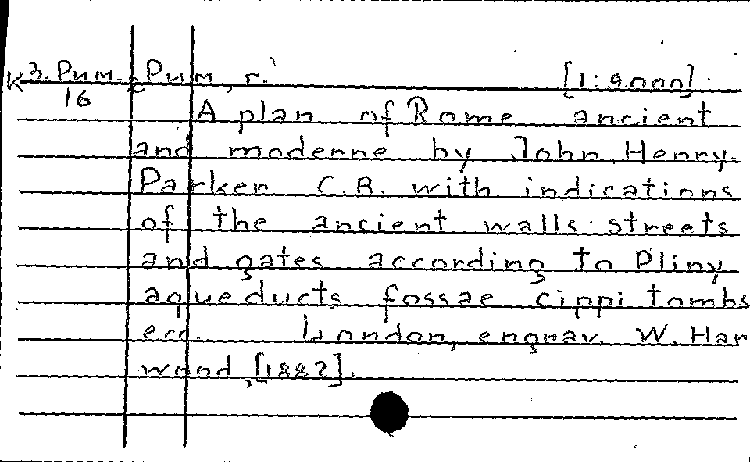 K3. Рим. Рим, г. [1:9000]
16
A plan of Rome ancient
and moderne by John Henry
Parker C.B. with indications
of the ancient walls streets
and gates according to Pliny
aqueducts fossae cippi tombs
ecc. London, engrav. W. Har
wood, [1882].